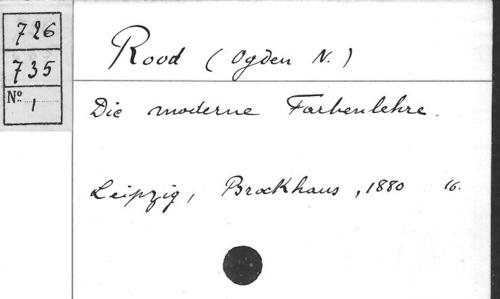 726
735
Nº 1
Rood (Ogden N.)
Die moderne Farbenlehre.
Leipzig, Brockhaus, 1880 16.